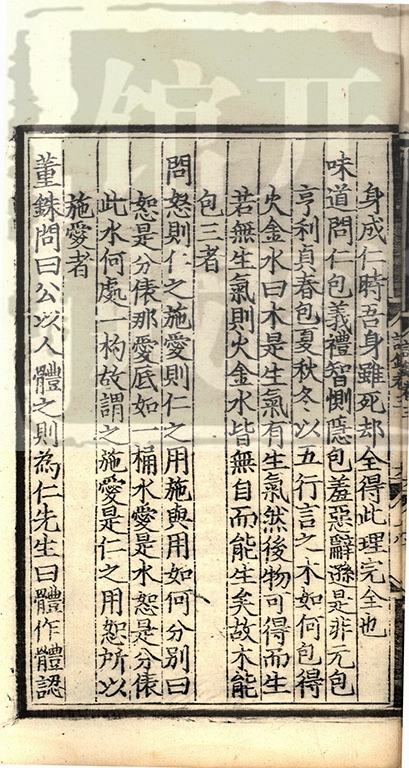 身成仁時吾身雖死却全得此理完全也
味道問仁包義禮智惻隱包羞惡辭遜是非元包
亨利貞春包夏秋冬以五行言之木如何包得
火金水曰木是生氣有生氣然後物可得而生
若無生氣則火金水皆無自而能生矣故木能
包三者
問恕則仁之施愛則仁之用施與用如何分別曰
恕是分俵那愛底如一桶水愛是水恕是分俵
此水何處一杓故謂之施愛是仁之用恕所以
施愛者
董銖問曰公以人體之則為仁先生曰體作體認